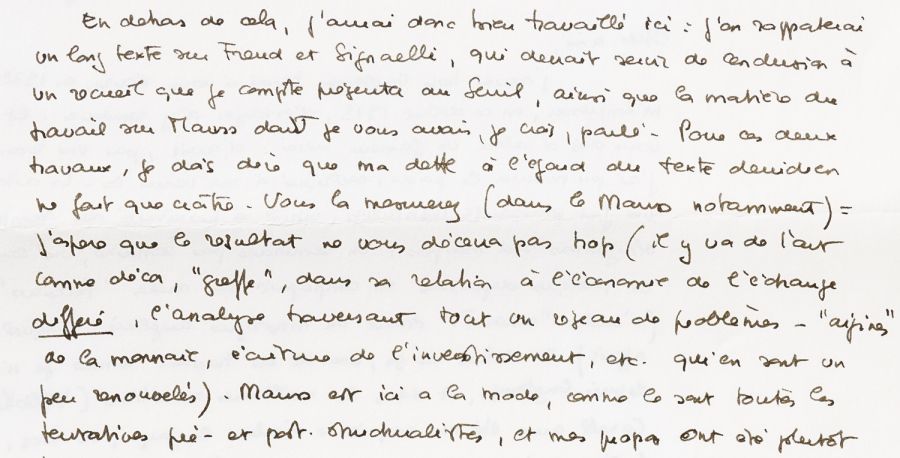 En dehors de cela, j'aurai donc bien travaillé ici : j'en rapporterai
un long texte sur Freud et Signorelli, qui devrait servir de conclusion à
un recueil que je compte présenter au Seuil, ainsi que la matière du
travail sur Mauss dont je vous avais, je crois, parlé. Pour ces deux
travaux, je dois dire que ma dette à l'égard du texte derridien
ne fait que croître. Vous la mesurerez (dans le Mauss notamment) :
j'espère que le résultat ne vous décevra pas trop (il y va de l'art
comme décor, "greffe", dans sa relation à l'économie de l'échange
différé, l'analyse traversant tout un réseau de problèmes - "origines"
de la monnaie, écriture de l'investissement, etc. qui en sont un
peu renouvelés). Mauss est ici a la mode, comme le sont toutes les
tentatives pré- et post-structuralistes, et mes propos ont été plutôt